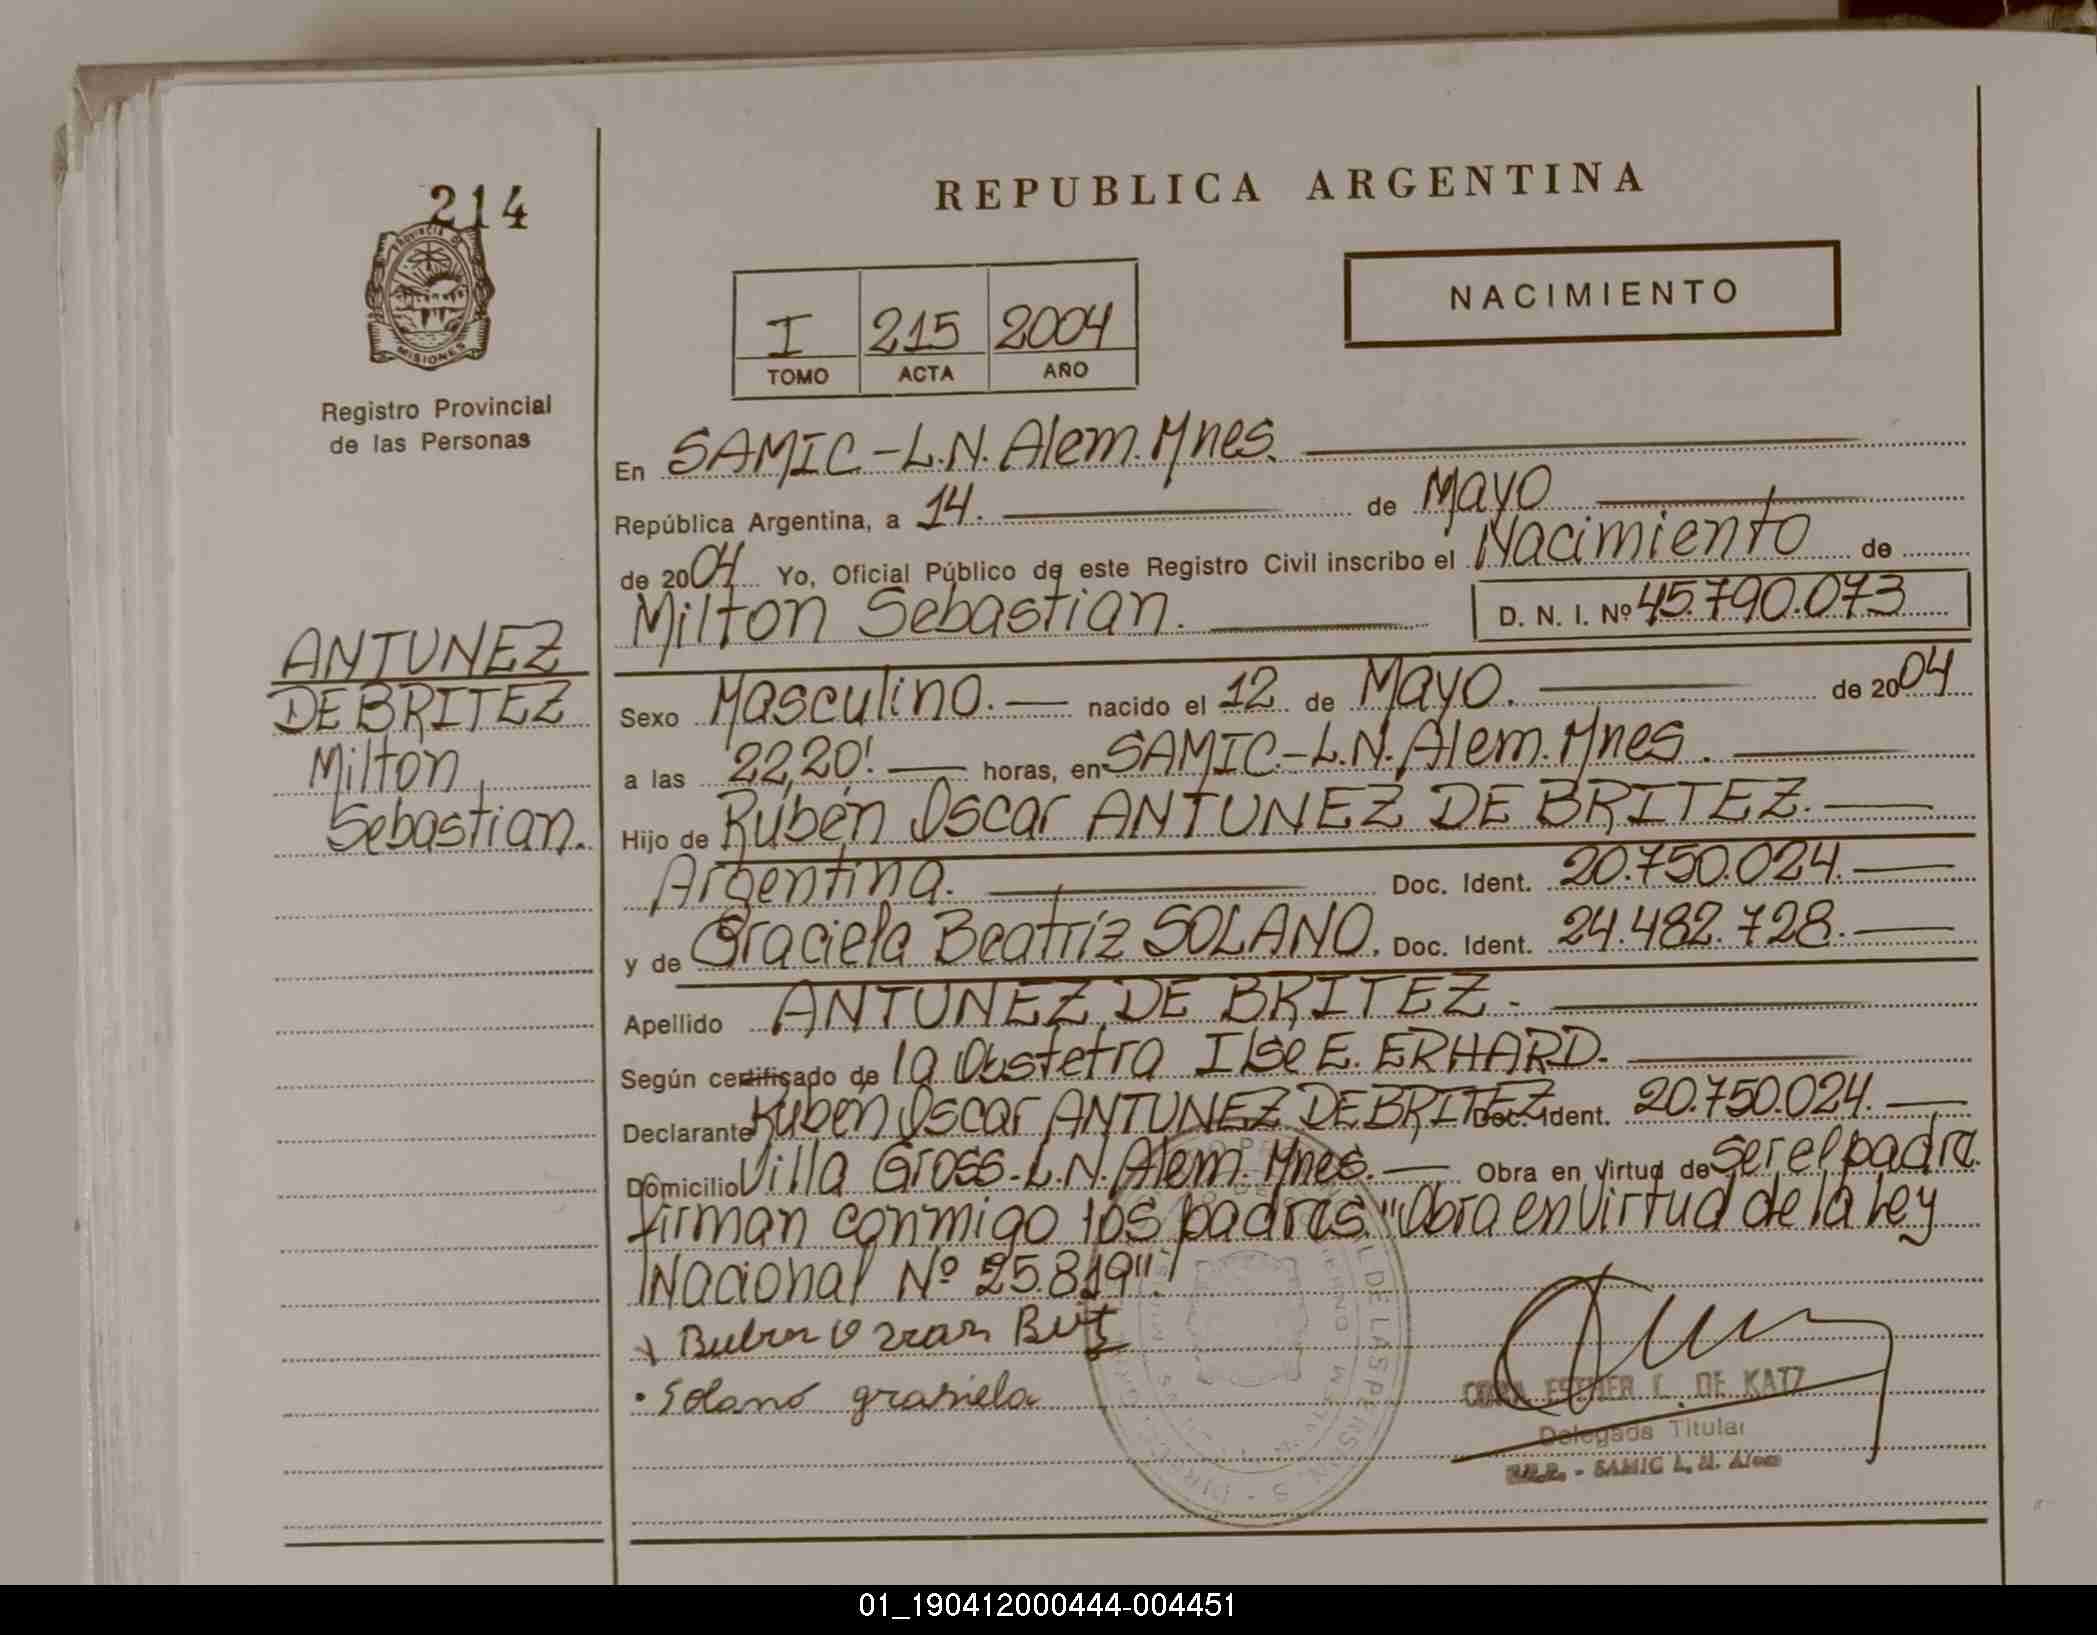 214
PROVINCIA DE
MISIONES
Registro Provincial
de las Personas
ANTUNEZ
DE BRITEZ
Milton
Sebastian.
REPUBLICA ARGENTINA
NACIMIENTO
I 215 2004
TOMO ACTA AÑO
En SAMIC-L.N.Alem.Mnes.
República Argentina, a 14. de Mayo
de 2004 Yo, Oficial Público de este Registro Civil inscribo el Nacimiento de
Milton Sebastian. D. N. I. Nº 45.790.073
Sexo Masculino. nacido el 12 de Mayo. de 2004
a las 22,20'. horas, en SAMIC.-L.N.Alem.Mnes.
Hijo de Rubén Oscar ANTUNEZ DE BRITEZ.
Argentina. Doc. Ident. 20.750.024.
y de Graciela Beatríz SOLANO. Doc. Ident. 24.482.728.
Apellido ANTUNEZ DE BRITEZ.
Según certificado de la Obstetra Ilse E. ERHARD.
Declarante Rubén Oscar ANTUNEZ DE BRITEZ Doc. Ident. 20.750.024.
Domicilio Villa Gross.-L.N.Alem.Mnes. Obra en virtud de ser el padre
firman conmigo los padres. "Obra en Virtud de la Ley
Nacional Nº 25.819".
Solano grasiela
ESTHER E. DE KATZ
Delegada Titular
- SAMIC L. N. Alem
01_190412000444-004451